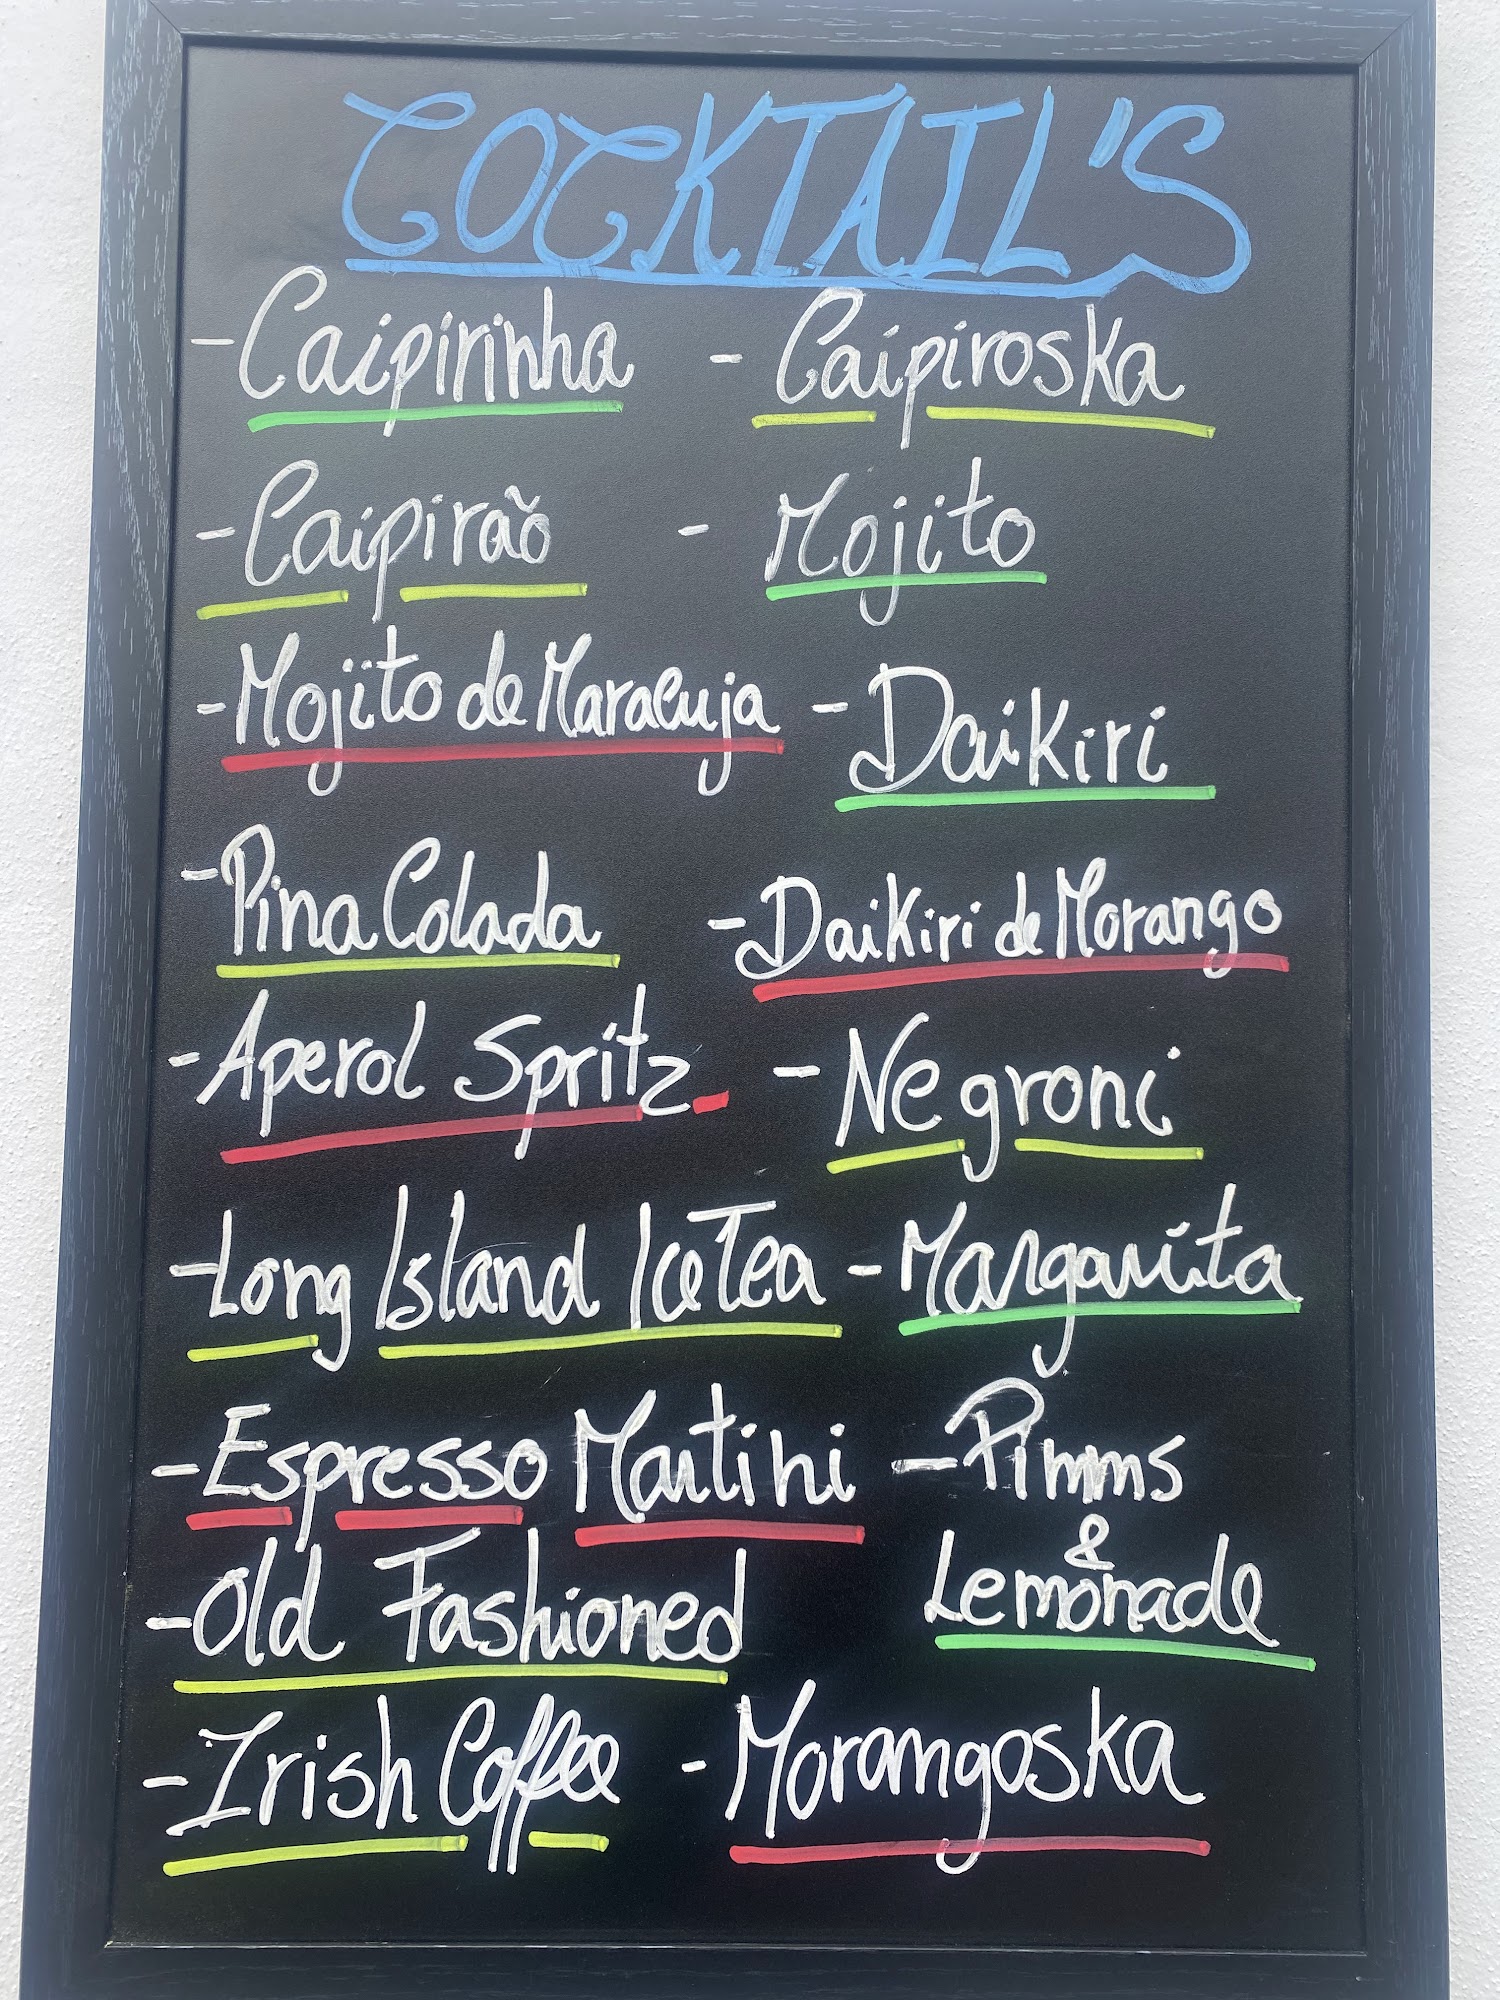 COCKTAIL'S
- Caipirinha - Caipiroska
- Caipirão - Mojito
- Mojito de Maracuja - Daikiri
- Pina Colada - Daikiri de Morango
- Aperol Spritz - Negroni
- Long Island Ice Tea - Margarita
- Espresso Martini - Pimms
&
- Old Fashioned Lemonade
- Irish Coffee - Morangoska